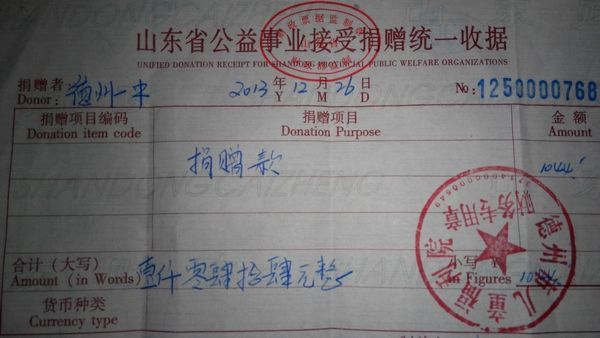 山东省公益事业接受捐赠统一收据
UNIFIED DONATION RECEIPT FOR SHANDONG PROVINCIAL PUBLIC WELFARE ORGANIZATIONS
捐赠者 德州一中 2013 年 12 月 26 日 No: 1250000768
Donor: Y M D
捐赠项目编码 捐赠项目 金额
Donation item code Donation Purpose Amount
捐赠款 1044
合计（大写） 壹仟零肆拾肆元整 小写
Amount (in Words) in Figures
货币种类
Currency type
德州市儿童福利院
财务专用章